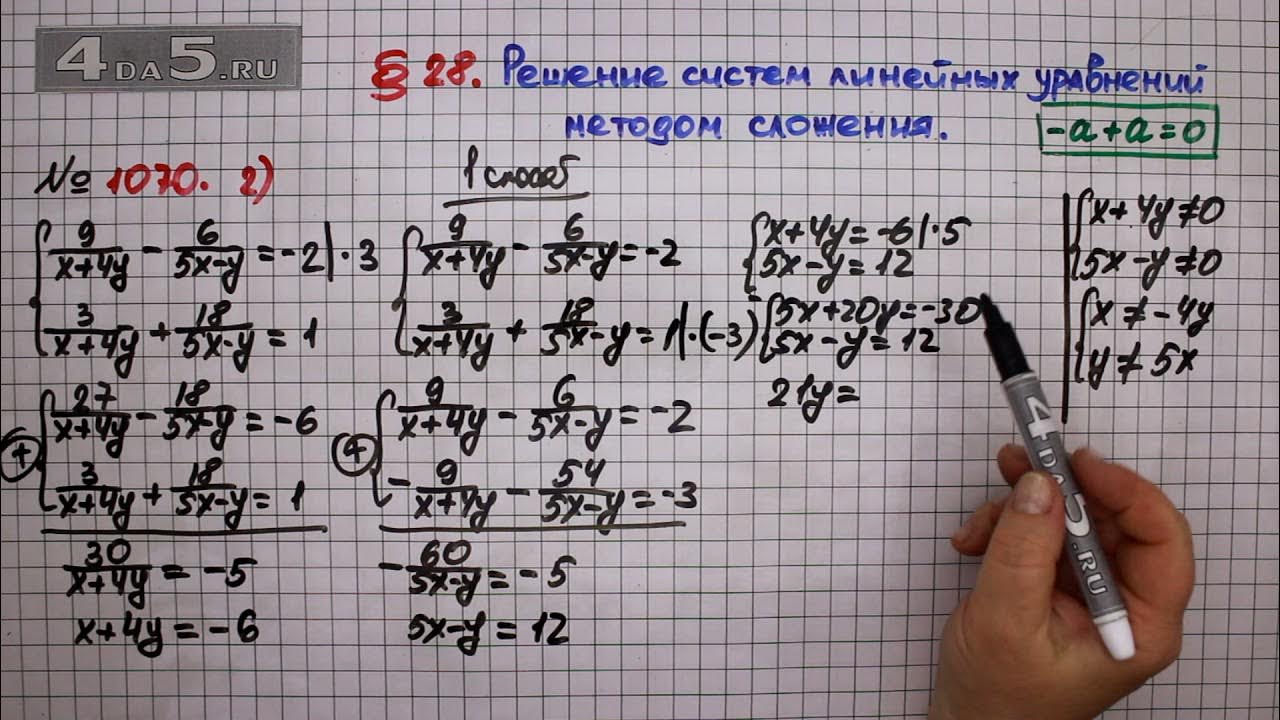 4DA5.RU
§ 28. Решение систем линейных уравнений
методом сложения.
-a+a=0
№ 1070. 2)
1 способ
9/(x+4y) - 6/(5x-y) = -2 | ·3
3/(x+4y) + 18/(5x-y) = 1
27/(x+4y) - 18/(5x-y) = -6
+
3/(x+4y) + 18/(5x-y) = 1
30/(x+4y) = -5
x+4y = -6
9/(x+4y) - 6/(5x-y) = -2
3/(x+4y) + 18/(5x-y) = 1 | ·(-3)
9/(x+4y) - 6/(5x-y) = -2
+
- 9/(x+4y) - 54/(5x-y) = -3
- 60/(5x-y) = -5
5x-y = 12
x+4y = -6 | ·5
5x-y = 12
-
5x+20y = -30
5x-y = 12
21y =
x+4y ≠ 0
5x-y ≠ 0
x ≠ -4y
y ≠ 5x
4DA5.RU